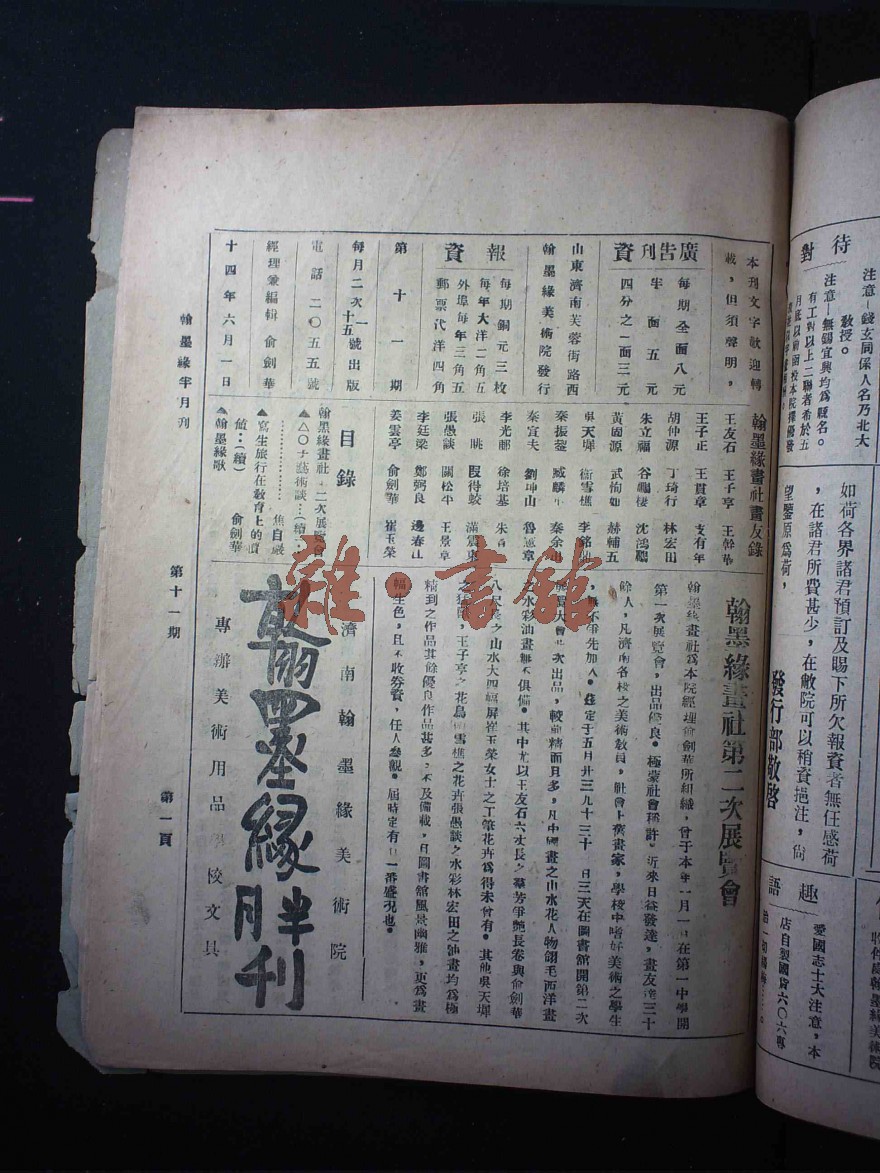 待對
注意—錢玄同係人名乃北大
教授。
注意—無錫宜興均爲縣名。
有工對以上二聯者希於五
如荷各界諸君預訂及賜下所欠報資者無任感荷
，在諸君所費甚少，在敝院可以稍資挹注，尙
望鑒原爲荷，
發行部敬啓
趣語
愛國志士大注意，本
店自製國貨六〇六專
本刊文字歡迎轉
載，但須聲明，
廣告刊資
每期全面八元
半面五元
四分之一面三元
山東濟南芙蓉街路西
翰墨緣美術院發行
報資
每期銅元三枚
每年大洋二角五
外埠每年三角五
郵票代洋四角
第十一期
每月二次一十五號出版
電話二〇五五號
經理兼編輯 俞劍華
十四年六月一日
翰墨緣畫社畫友錄
王友石 王子亨 王幹華
王子正 王貫章 支有年
胡仲源 丁琦行 林宏田
朱立福 谷鷗棲 沈鴻鵬
黃固源 武恂如 赫輔五
吳天墀 衛雪樵 李銘
秦振鎏 臧麟 秦余
秦寅夫 劉坤山 魯 章
李光郦 徐培基 朱
張眺 段待蛟 滿震東
張愚談 關松年 王景章
李廷梁 鄭弼良 邊春山
姜雲亭 俞劍華 崔玉榮
目錄
翰墨緣畫社 二次展覽會
▲△〇十藝術談…(續)
焦自嚴
▲寫生旅行在敎育上的價
値：(續) 俞劍華
▲翰墨緣歌
翰墨緣畫社第二次展覽會
翰墨緣畫社爲本院經理俞劍華所組織，曾于本年 月一日在第一中學開
第一次展覽會，出品優良。極蒙社會稱許。近來日益發達，畫友達三十
餘人，凡濟南各校之美術敎員，社會上舊畫家，學校中嗜好美術之學生
，無不爭先加入。茲定于五月廿三九十三十 日三天在圖書館開第二次
展覽大會此次出品，較前精而且多，凡中國畫之山水花人物翎毛西洋畫
水彩油畫無不俱備。其中尤以王友石六丈長之羣芳爭艷長卷與俞劍華
八尺長之山水大四幅屛崔玉榮女士之工筆花卉爲得未曾有。其他吳天墀
之 王子亨之花鳥衛雪樵之花卉張愚談之水彩林宏田之油畫均爲極
精到之作品其餘優良作品甚多，不及備載，且圖書館風景幽雅，更爲畫
幅生色，且不收券資，任人參觀。屆時定有 一番盛況也。
濟南翰墨緣美術院
翰墨緣半月刊
專辦美術用品 校文具
翰墨緣半月刊
第十一期
第一頁
雜·書館